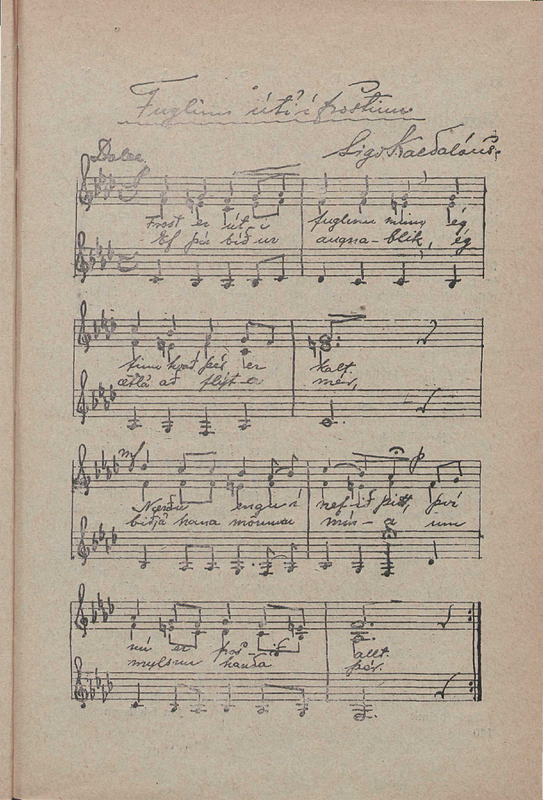 Fuglinn úti í frostinu
Sigv. Kaldalóns.
Dolce.
Frost er úti fuglinn minn ég
Ef þú bíður augna-blik, ég
finn hvað þér er kalt.
ætla að flýt-a mér,
mf
p
Nærðu engu í nef-ið þitt, því
biðja hana mömmu mín-a um
nú er fros-ið allt.
mylsnu handa þér.